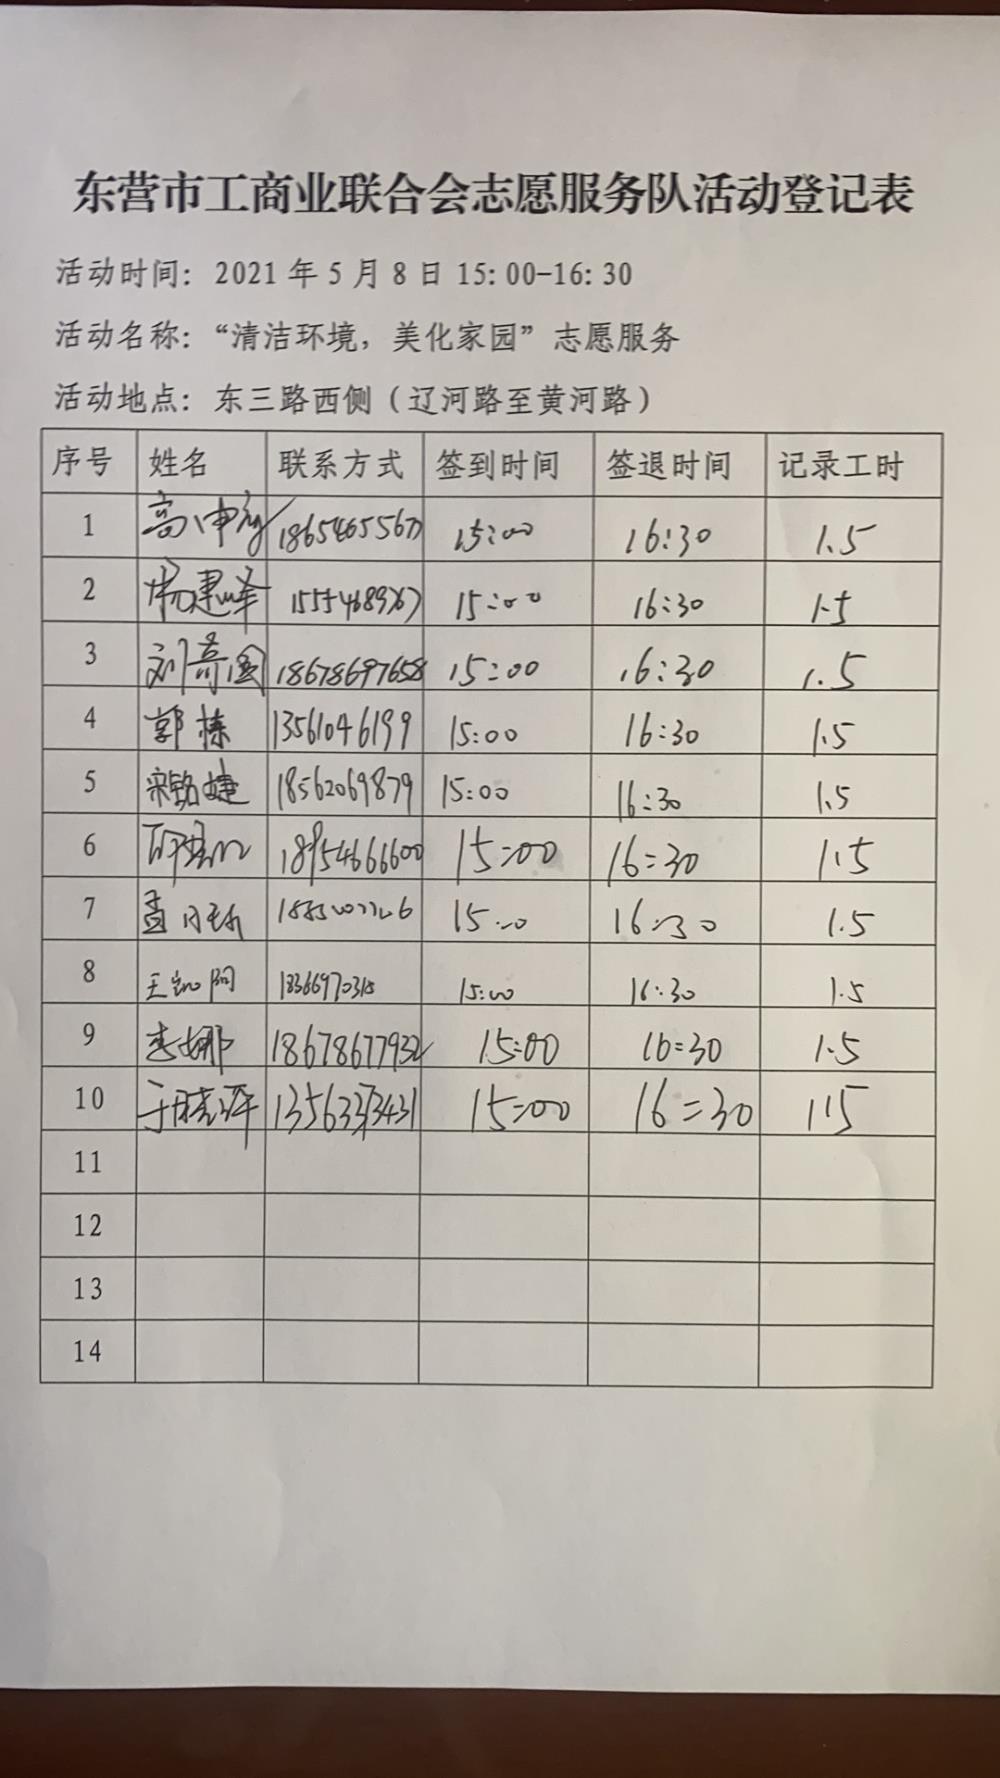 东营市工商业联合会志愿服务队活动登记表
活动时间：2021 年 5 月 8 日 15:00-16:30
活动名称：“清洁环境，美化家园”志愿服务
活动地点：东三路西侧（辽河路至黄河路）
序号 姓名 联系方式 签到时间 签退时间 记录工时
1 15:00 16:30 1.5
2 杨建峰 15:00 16:30 1.5
3 18678697658 15:00 16:30 1.5
4 郭栋 13561046199 15:00 16:30 1.5
5 宋铭婕 18562069879 15:00 16:30 1.5
6 18954666600 15:00 16:30 1.5
7 16:30 1.5
8 15:00 16:30 1.5
9 李娜 18678677932 15:00 16:30 1.5
10 15:00 16:30 1.5
11
12
13
14